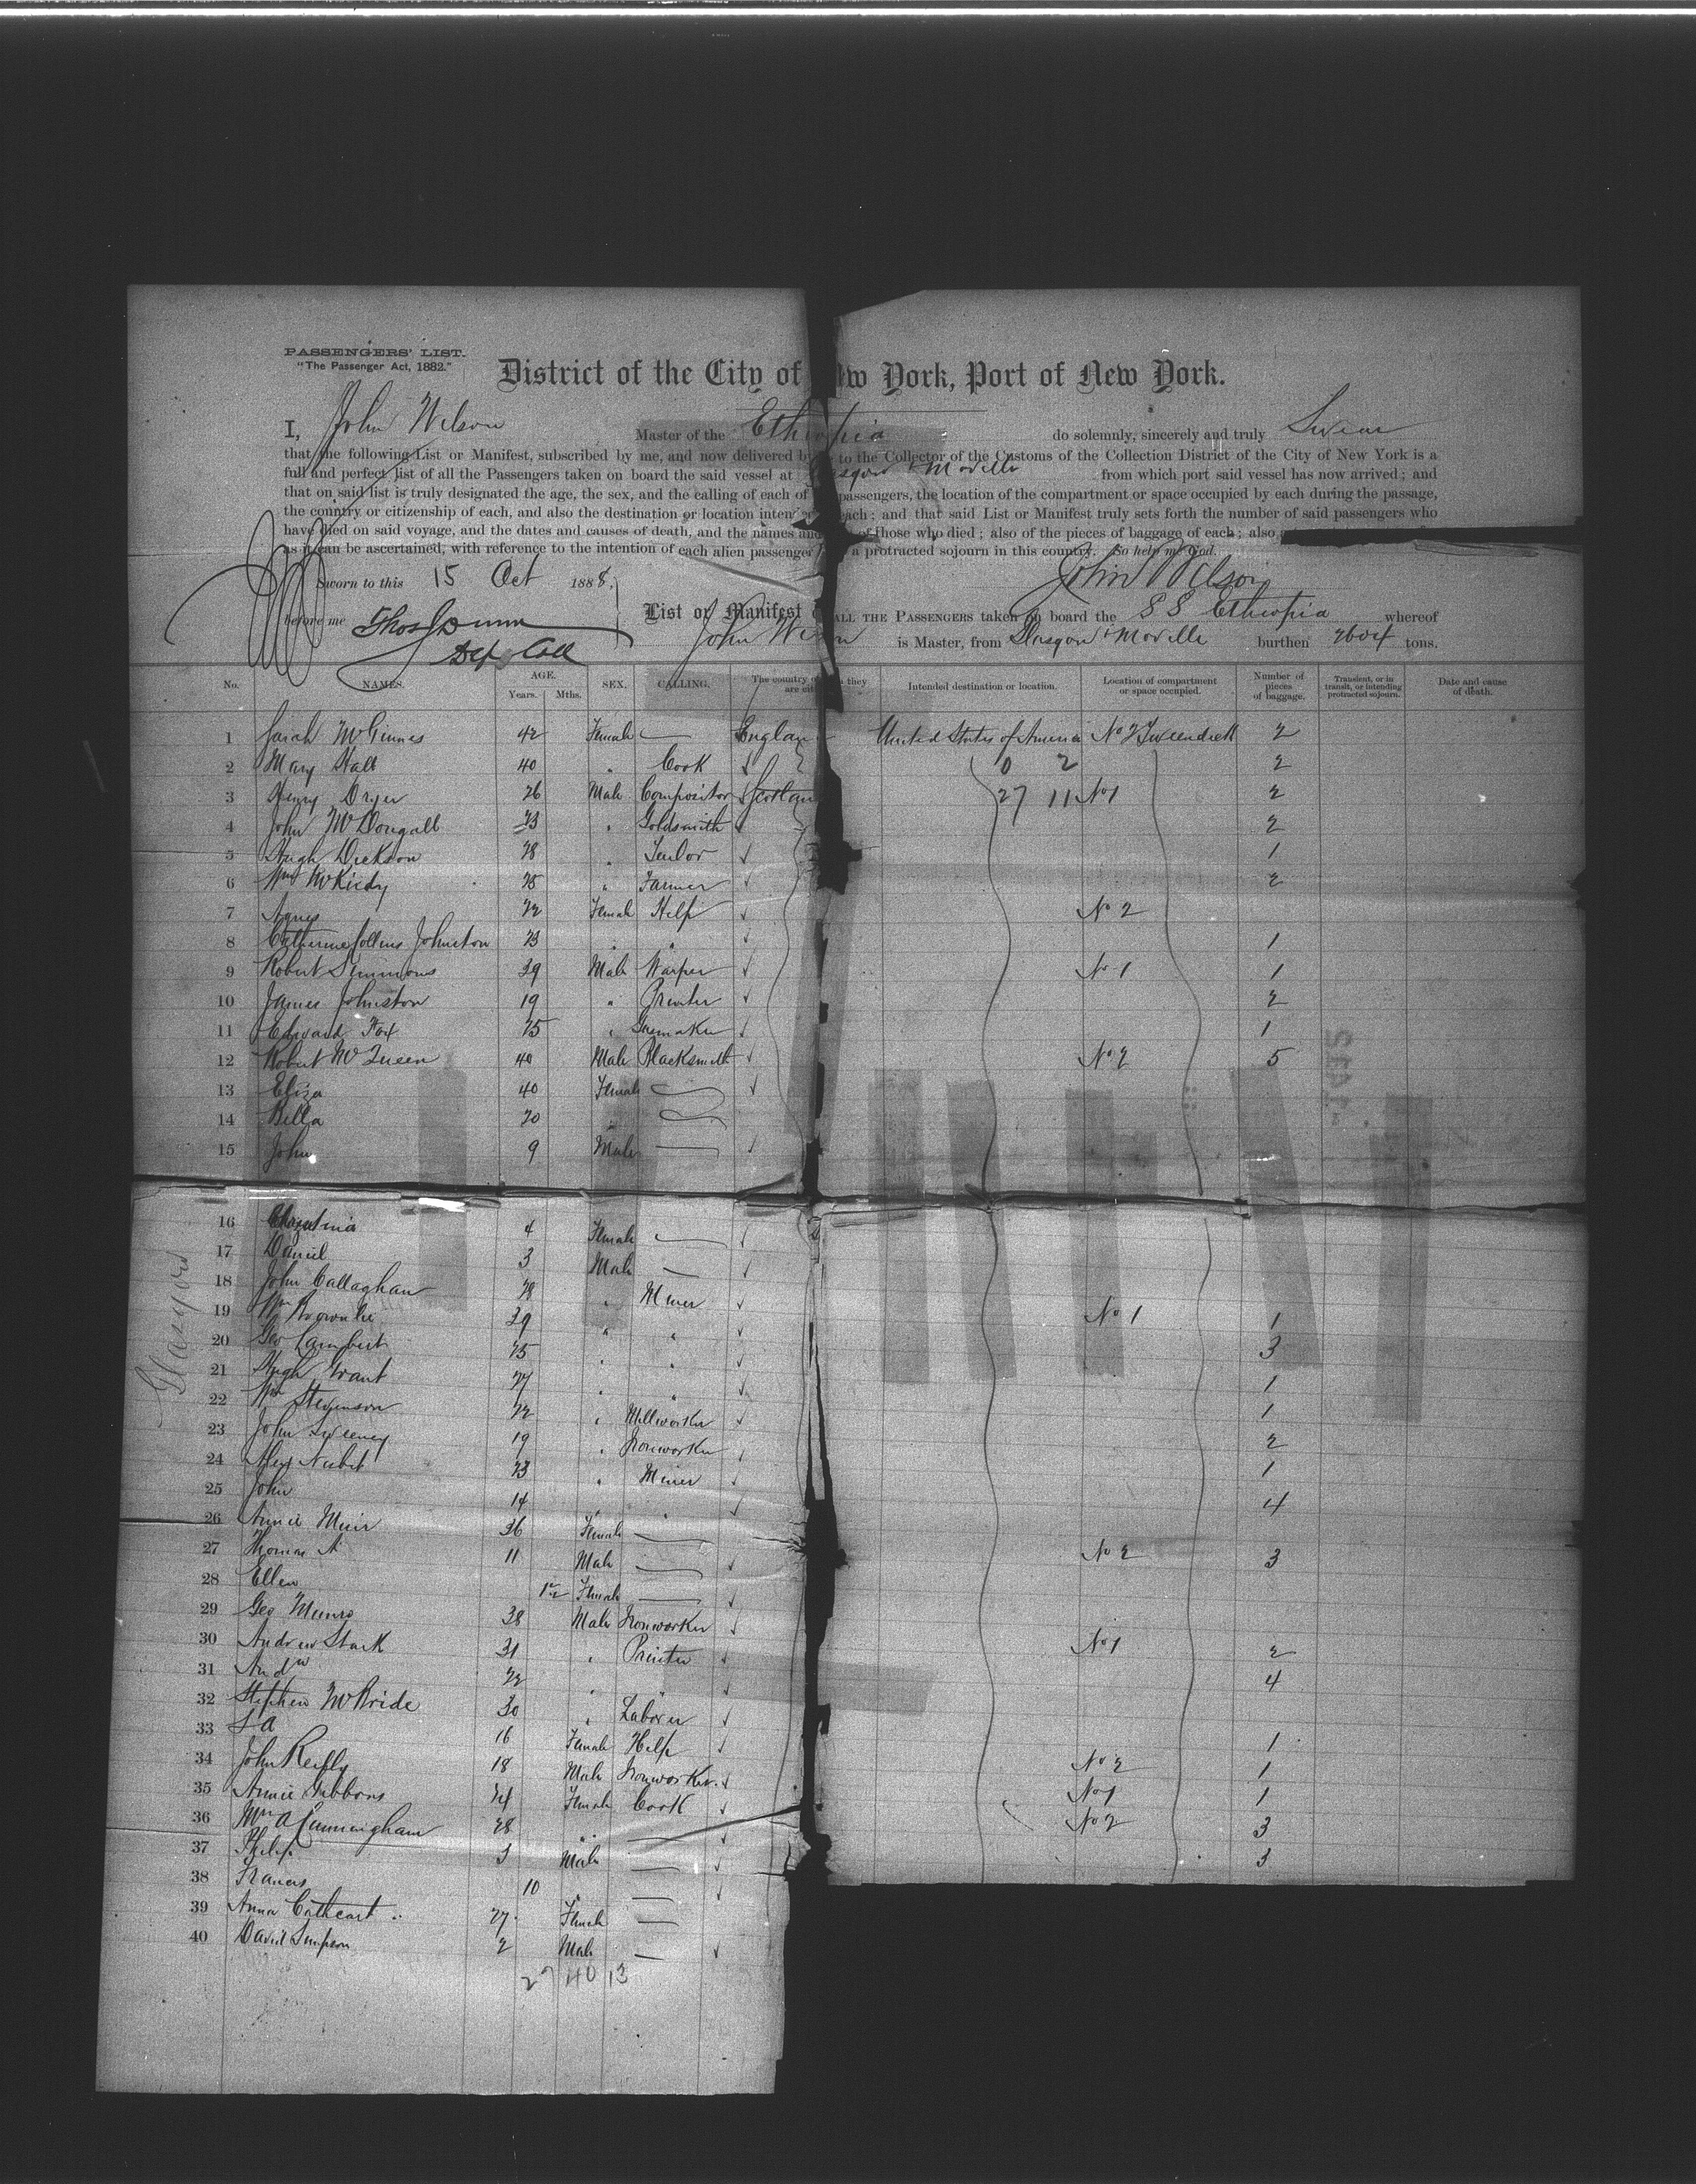 PASSENGERS' LIST.
"The Passenger Act, 1882."
District of the City of New York, Port of New York.
I, John Wilson Master of the Ethiopia do solemnly, sincerely and truly Swear
that the following List or Manifest, subscribed by me, and now delivered by to the Collector of the Customs of the Collection District of the City of New York is a
full and perfect list of all the Passengers taken on board the said vessel at Glasgow & Moville from which port said vessel has now arrived; and
that on said list is truly designated the age, the sex, and the calling of each of passengers, the location of the compartment or space occupied by each during the passage,
the country or citizenship of each, and also the destination or location inten each; and that said List or Manifest truly sets forth the number of said passengers who
have died on said voyage, and the dates and causes of death, and the names and of those who died; also of the pieces of baggage of each; also
as it can be ascertained, with reference to the intention of each alien passenger a protracted sojourn in this country. So help me God.
Sworn to this 15 Oct 1888. John Wilson
before me Thos Dunn List or Manifest ALL THE PASSENGERS taken on board the S S Ethiopia whereof
Dep Coll John Wilson is Master, from Glasgow & Moville burthen 2604 tons.
No. NAMES. AGE. Years. Mths. SEX. CALLING. The country they are cit Intended destination or location. Location of compartment or space occupied. Number of pieces of baggage. Transient, or in transit, or intending protracted sojourn. Date and cause of death.
1 Sarah McGinnes 42 Female England United States of America No 2 Tweendeck 2
2 Mary Hall 40 " Cook 0 2 2
3 Henry Dryer 26 Male Compositor Scotland 27 11 No 1 2
4 John McDougall 23 " Goldsmith 2
5 Hugh Dickson 28 " 1
6 Wm 25 " Farmer 2
7 Agnes 22 Female Help No 2
8 Catherine Collins Johnston 23 " " 1
9 Robert Simmons 39 Male Warper No 1 1
10 James Johnston 19 " Printer 2
11 Edward Fox 25 " 1
12 Robert McQueen 40 Male Blacksmith No 2 5
13 Eliza 40 Female
14 Bella 20 "
15 John 9 Male
16 Christina 4 Female
17 Daniel 3 Male
18 John Callaghan 28 " Miner No 1 1
19 Wm Brownlie 39 " " 3
20 Geo Lambert 25 " " 1
21 Hugh Grant 27 " " 1
22 Wm Stevenson 22 " Millworker 2
23 John Sweeney 19 " Ironworker 1
24 Alex Nisbet 23 " Miner 4
25 John 14 " "
26 Annie Muir 36 Female No 2 3
27 Thomas A 11 Male
28 Ellen Female
29 Geo Munro 38 Male Ironworker No 1 2
30 Andrew Stark 31 " Printer 4
31 Andw 22 " "
32 Stephen McBride 30 " Laborer 1
33 16 Female Help No 2 1
34 John Reilly 18 Male Ironworker No 1 1
35 Annie Gibbons 24 Female Cook No 2 3
36 Mrs A Cunningham 28 " 3
37 Philip 3 Male
38 Francis 10 "
39 Anna Cathcart 27 Female
40 David Simpson 2 Male
27 40 13
Glasgow